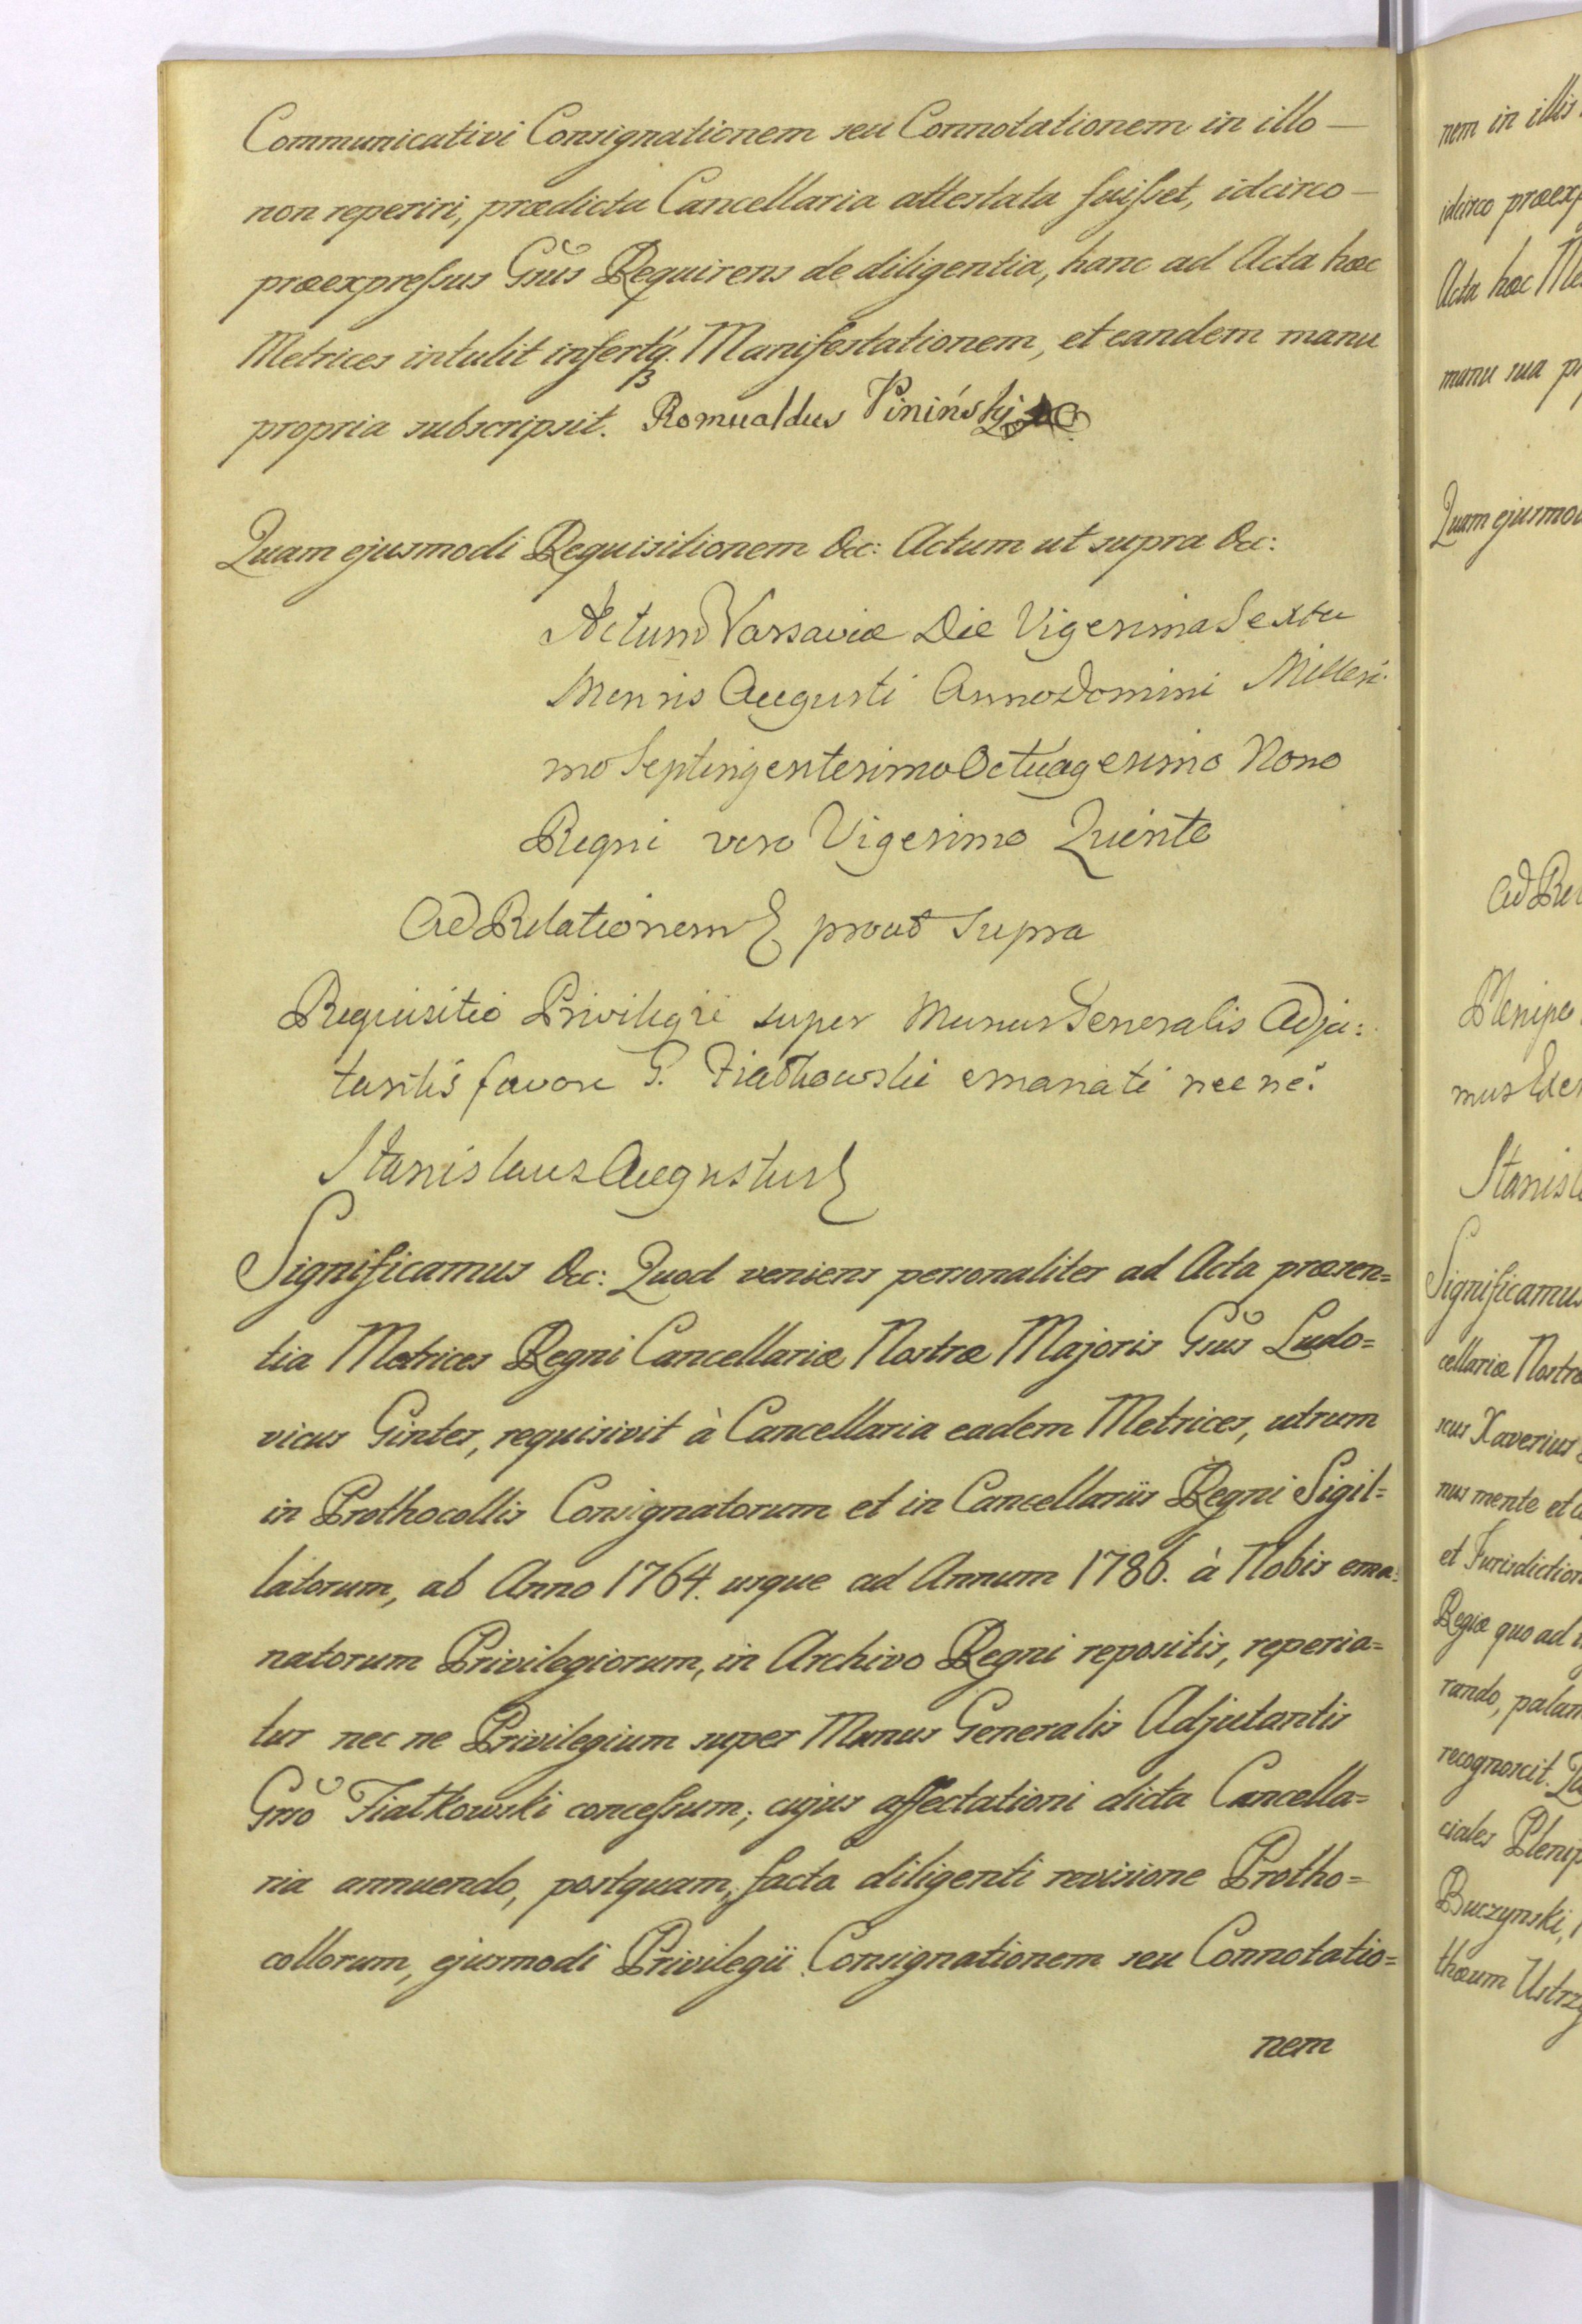 Communicativi Consignationem seu Connotationem in illo —
non reperiri, prædicta Cancellaria attestata fuisset, idcirco —
præexpressus Gsus Requirens de diligentia, hanc ad Acta hæc
Metrices intulit Manifestationem, et eandem manu
propria subscripsit. Romualdus Piniński
Quam ejusmodi Requisitionem &c: Actum ut supra &c:
Actum Varsaviæ Die Vigesima Sexta
Mensis Augusti Anno Domini Millesi-
mo Septingentesimo Octuagesimo Nono
Regni vero Vigesimo Quinto
Ad Relationem prout supra
Requisitio Privilegii super Munus Generalis Adju:
tantis favore G. Fiatkowski emanati nec ne.
Stanislaus Augustus
Significamus &c: Quod veniens personaliter ad Acta præsen=
tia Metrices Regni Cancellariæ Nostræ Majoris Gsus Ludo=
vicus Ginter, requisivit à Cancellaria eadem Metrices, utrum
in Prothocollis Consignatorum et in Cancellariis Regni Sigil=
latorum, ab Anno 1764. usque ad Annum 1786. à Nobis ema=
natorum Privilegiorum, in Archivo Regni repositis, reperia=
tur nec ne Privilegium super Munus Generalis Adjutantis
Gsso Fiatkowski concessum; cujus affectationi dicta Cancella=
ria annuendo, postquam, facta diligenti revisione Protho=
collorum, ejusmodi Privilegii Consignationem seu Connotatio=
nem
nem in illis
idcirco præexp
Acta hæc Me
manu sua p
Quam ejusmo
Ad Re
Plenipo
mus
Stanisl
Significamus
cellariæ Nostræ
scus Xaverius
nus mente et
et Jurisdiction
Regiæ quo ad
rando, palam
recognoscit.
ciales Plenip
Buczynski,
thæum Ustrzy